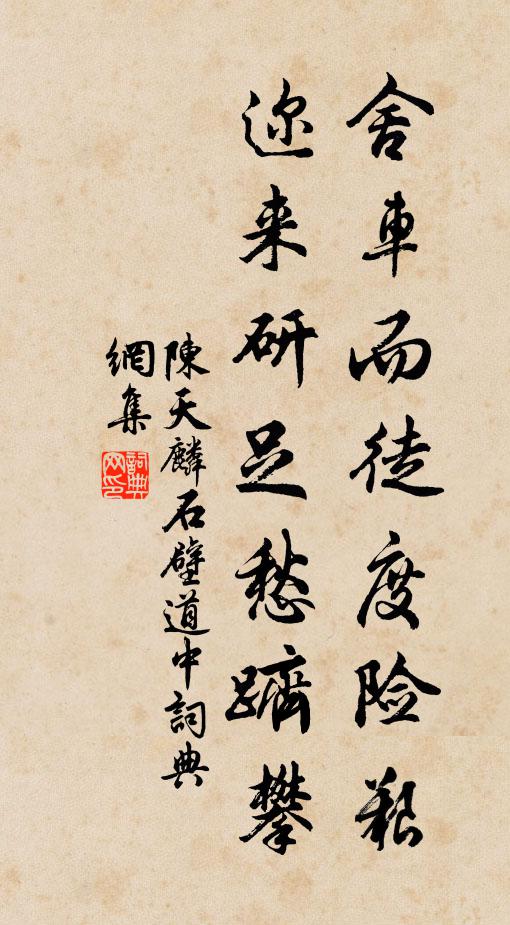 舍車而徒度险艱
迩来研足愁躋攀
陳天麟石壁道中詞典
網集
詞典
网印